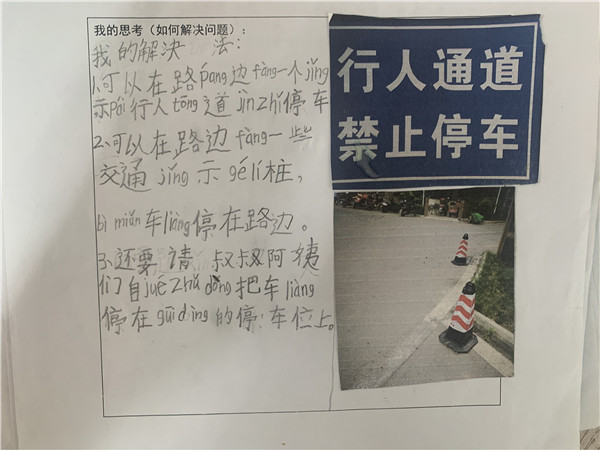 我的思考（如何解决问题）：
我的解决 法：
1.可以在路páng边fàng一个jǐng
示pái行人tōng道jìn zhǐ停车
2.可以在路边fàng一些
交通jǐng示gé lí桩，
bì miǎn车liàng停在路边。
3.还要请叔叔阿姨
们自jué zhǔ dòng把车liàng
停在guī dìng的停车位上。
行人通道
禁止停车